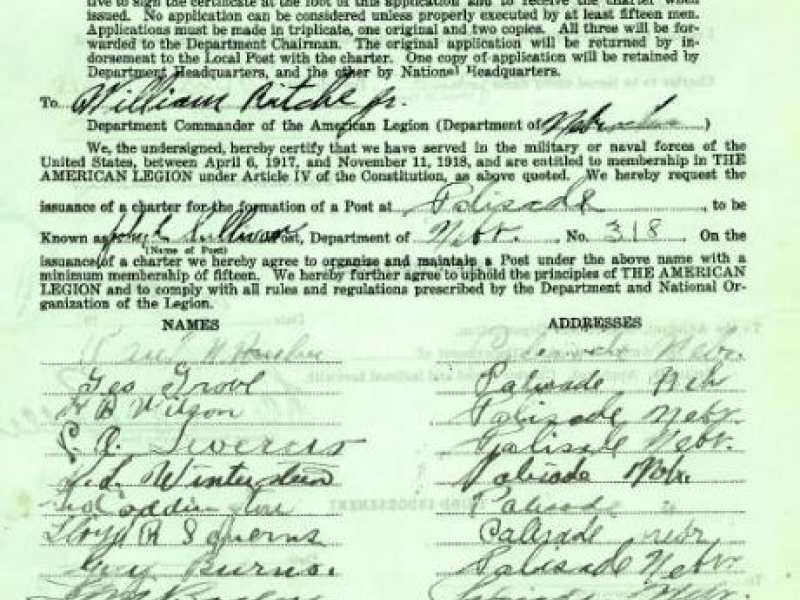 tive to sign the certificate at the foot of this application and to receive the charter when
issued. No application can be considered unless properly executed by at least fifteen men.
Applications must be made in triplicate, one original and two copies. All three will be for-
warded to the Department Chairman. The original application will be returned by in-
dorsement to the Local Post with the charter. One copy of application will be retained by
Department Headquarters, and the other by National Headquarters.
To William Ritchie Jr.
Department Commander of the American Legion (Department of Nebraska)
We, the undersigned, hereby certify that we have served in the military or naval forces of the
United States, between April 6, 1917, and November 11, 1918, and are entitled to membership in THE
AMERICAN LEGION under Article IV of the Constitution, as above quoted. We hereby request the
issuance of a charter for the formation of a Post at Palisade, to be
Known as John L Sullivan Post, Department of Nebr. No. 318 On the
(Name of Post)
issuance of a charter we hereby agree to organise and maintain a Post under the above name with a
minimum membership of fifteen. We hereby further agree to uphold the principles of THE AMERICAN
LEGION and to comply with all rules and regulations prescribed by the Department and National Or-
ganization of the Legion.
NAMES ADDRESSES
Nebr.
Geo Grove Palisade Neb
H B Wilson Palisade Nebr.
Palisade Nebr.
Palisade Nebr.
Coddington Palisade "
Lloyd R Palisade nebr
Guy Burns. Palisade Nebr
Nebr.